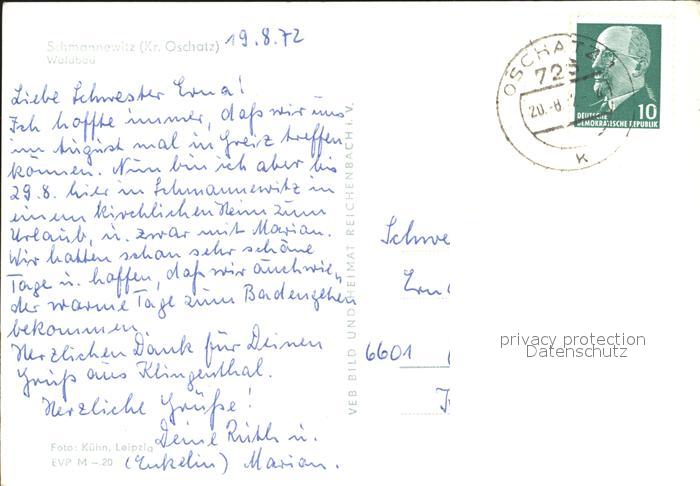 Schmannewitz (Kr. Oschatz)
Waldbad
19.8.72
Liebe Schwester Erna!
Ich hoffte immer, daß wir uns
im August mal in Greiz treffen
können. Nun bin ich aber bis
29.8. hier in Schmannewitz in
einem kirchlichen Heim zum
Urlaub, u. zwar mit Marian.
Wir hatten schon sehr schöne
Tage u. hoffen, daß wir auch wie-
der warme Tage zum Badengehen
bekommen.
Herzlichen Dank für Deinen
Gruß aus Klingenthal.
Herzliche Grüße!
Deine Ruth u.
(Enkelin) Marian.
Foto: Kühn, Leipzig
EVP M –.20
VEB BILD UND HEIMAT REICHENBACH i. V.
OSCHATZ
20.-8.
k
DEUTSCHE
DEMOKRATISCHE REPUBLIK
10
Schwe
Ern
6601
privacy protection
Datenschutz